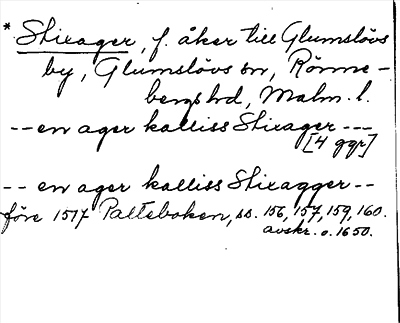 * Stixager, f. åker till Glumslövs
by, Glumslövs sn, Rönne-
bergs hd, Malm. l.
-- en ager kalliss Stixager ---
[4 ggr]
-- en ager kalliss Stixagger --
före 1517 Palteboken, ss. 156, 157, 159, 160.
avskr. o. 1650.